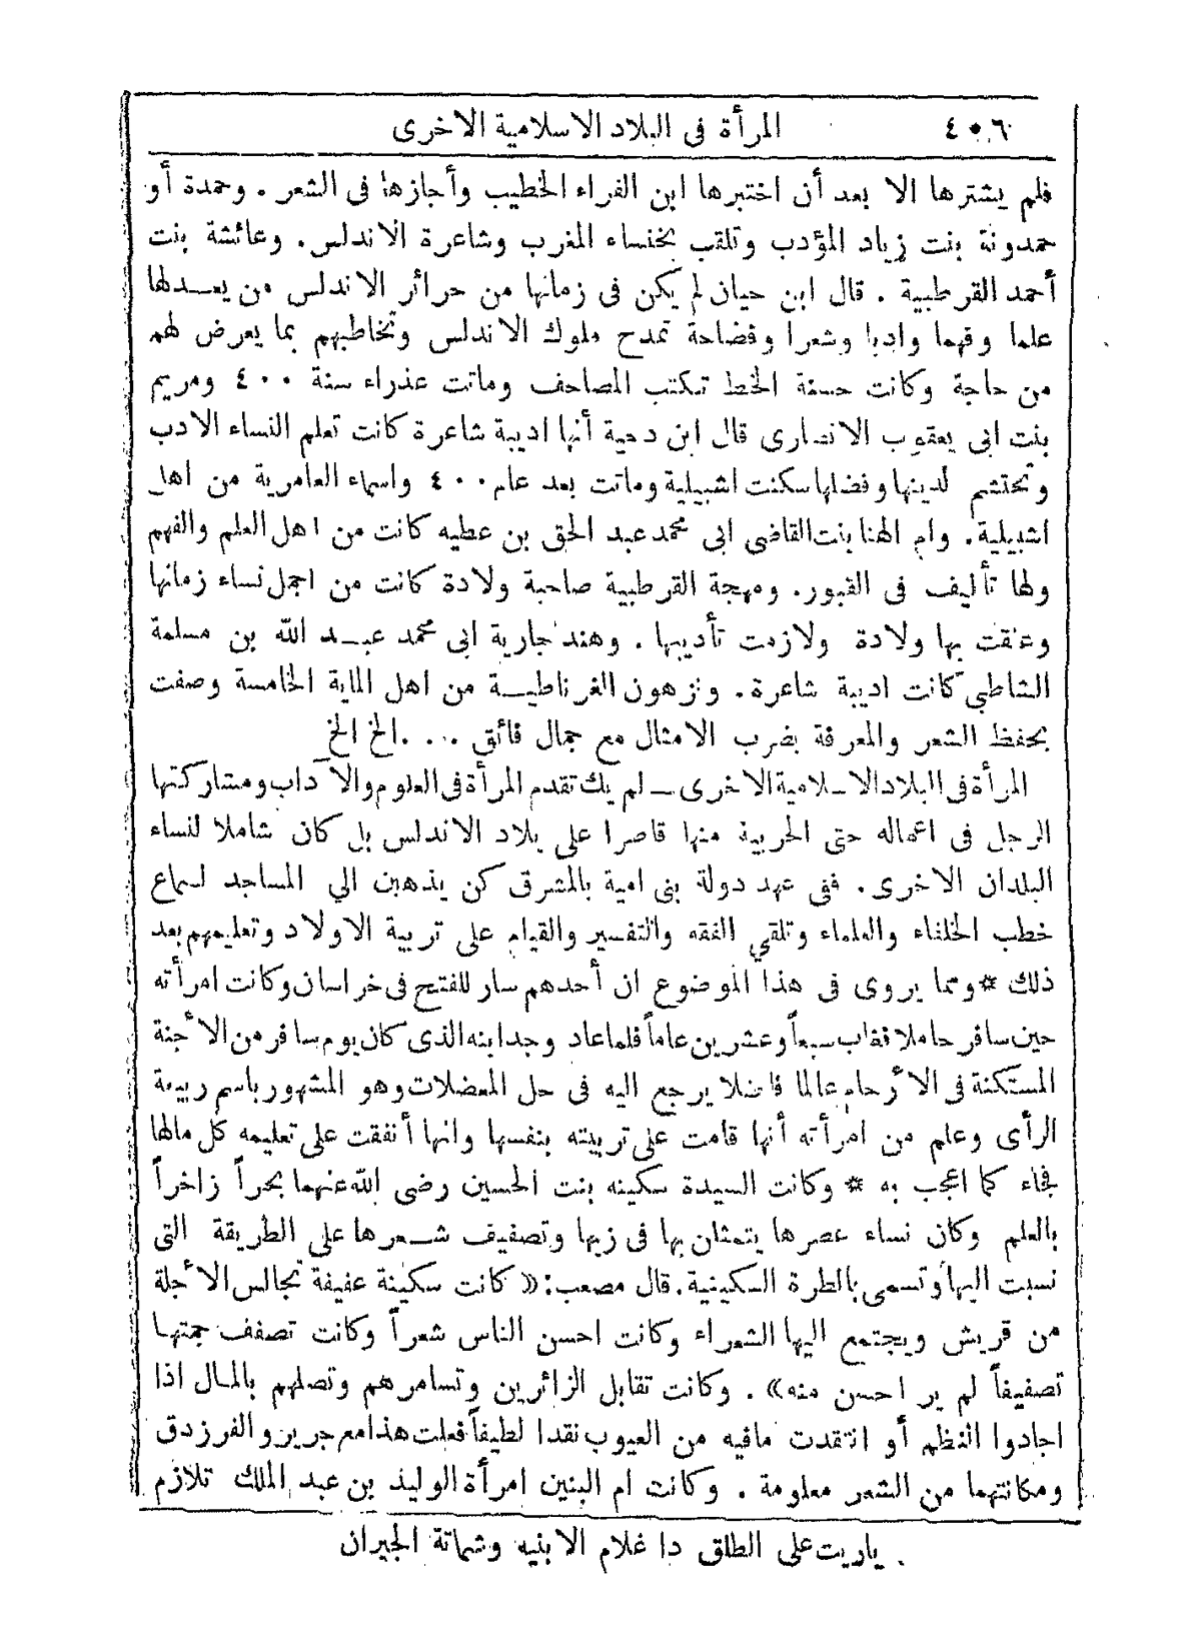 ٤٠٦ المرأة فى البلاد الاسلامية الاخرى
فلم يشترها الا بعد أن اختبرها ابن الفراء الخطيب وأجازها فى الشعر . وحمدة أو
حمدونة بنت زياد المؤدب وتلقب بخنساء المغرب وشاعرة الاندلس . وعائشة بنت
أحمد القرطبية . قال ابن حيان لم يكن فى زمانها من حرائر الاندلس من يعــدلها
علما وفهما وادبا وشعرا وفصاحة تمدح ملوك الاندلس وتخاطبهم بما يعرض لهم
من حاجة وكانت حسنة الخط تكتب المصاحف وماتت عذراء سنة ٤٠٠ ومريم
بنت ابى يعقوب الانصارى قال ابن دحية أنها اديبة شاعرة كانت تعلم النساء الادب
وتحتشم لدينها وفضلها سكنت اشبيلية وماتت بعد عام ٤٠٠ واسماء العامرية من اهل
اشبيلية . وام الهنا بنت القاضى ابى محمد عبد الحق بن عطيه كانت من اهل العلم والفهم
ولها تأليف فى القبور . ومهجة القرطبية صاحبة ولادة كانت من اجمل نساء زمانها
وعلقت بها ولادة ولازمت تأديبها . وهند جارية ابى محمد عبــد الله بن مسلمة
الشاطبى كانت اديبة شاعرة . ونزهون الغرناطيــة من اهل الماية الخامسة وصفت
بحفظ الشعر والمعرفة بضرب الامثال مع جمال فائق . . . .الخ الخ
المرأة فى البلاد الاسلامية الاخرى ــ لم يك تقدم المرأة فى العلوم والآداب ومشاركتها
الرجل فى اعماله حتى الحربية منها قاصرا على بلاد الاندلس بل كان شاملا لنساء
البلدان الاخرى . ففى عهد دولة بنى امية بالمشرق كن يذهبن الي المساجد لسماع
خطب الخلفاء والعلماء وتلقي الفقه والتفسير والقيام على تربية الاولاد وتعليمهم بعد
ذلك * ومما يروى فى هذا الموضوع ان أحدهم سار للفتح فى خراسان وكانت امرأته
حين سافر حاملا فغاب سبعاً وعشرين عاماً فلما عاد وجد ابنه الذى كان يوم سافر من الأجنة
المستكنة فى الأرحام عالما فاضلا يرجع اليه فى حل المعضلات وهو المشهور باسم ربيعة
الرأى وعلم من امرأته أنها قامت على تربيته بنفسها وانها أنفقت على تعليمه كل مالها
فجاء كما اعجب به * وكانت السيدة سكينه بنت الحسين رضى الله عنهما بحراً زاخراً
بالعلم وكان نساء عصرها يتمثلن بها فى زيها وتصفيف شــعرها على الطريقة التى
نسبت اليها وتسمى بالطرة السكينية . قال مصعب : « كانت سكينة عفيفة تجالس الأجلة
من قريش ويجتمع اليها الشعراء وكانت احسن الناس شعراً وكانت تصفف جمتها
تصفيفاً لم ير احسن منه » . وكانت تقابل الزائرين وتسامرهم وتصلهم بالمال اذا
اجادوا النظم أو انتقدت مافيه من العيوب نقدا لطيفاً فعلت هذا مع جرير والفرزدق
ومكانتهما من الشعر معلومة . وكانت ام البنين امرأة الوليد بن عبد الملك تلازم
ياريت على الطلق دا غلام الابنيه وشماتة الجيران